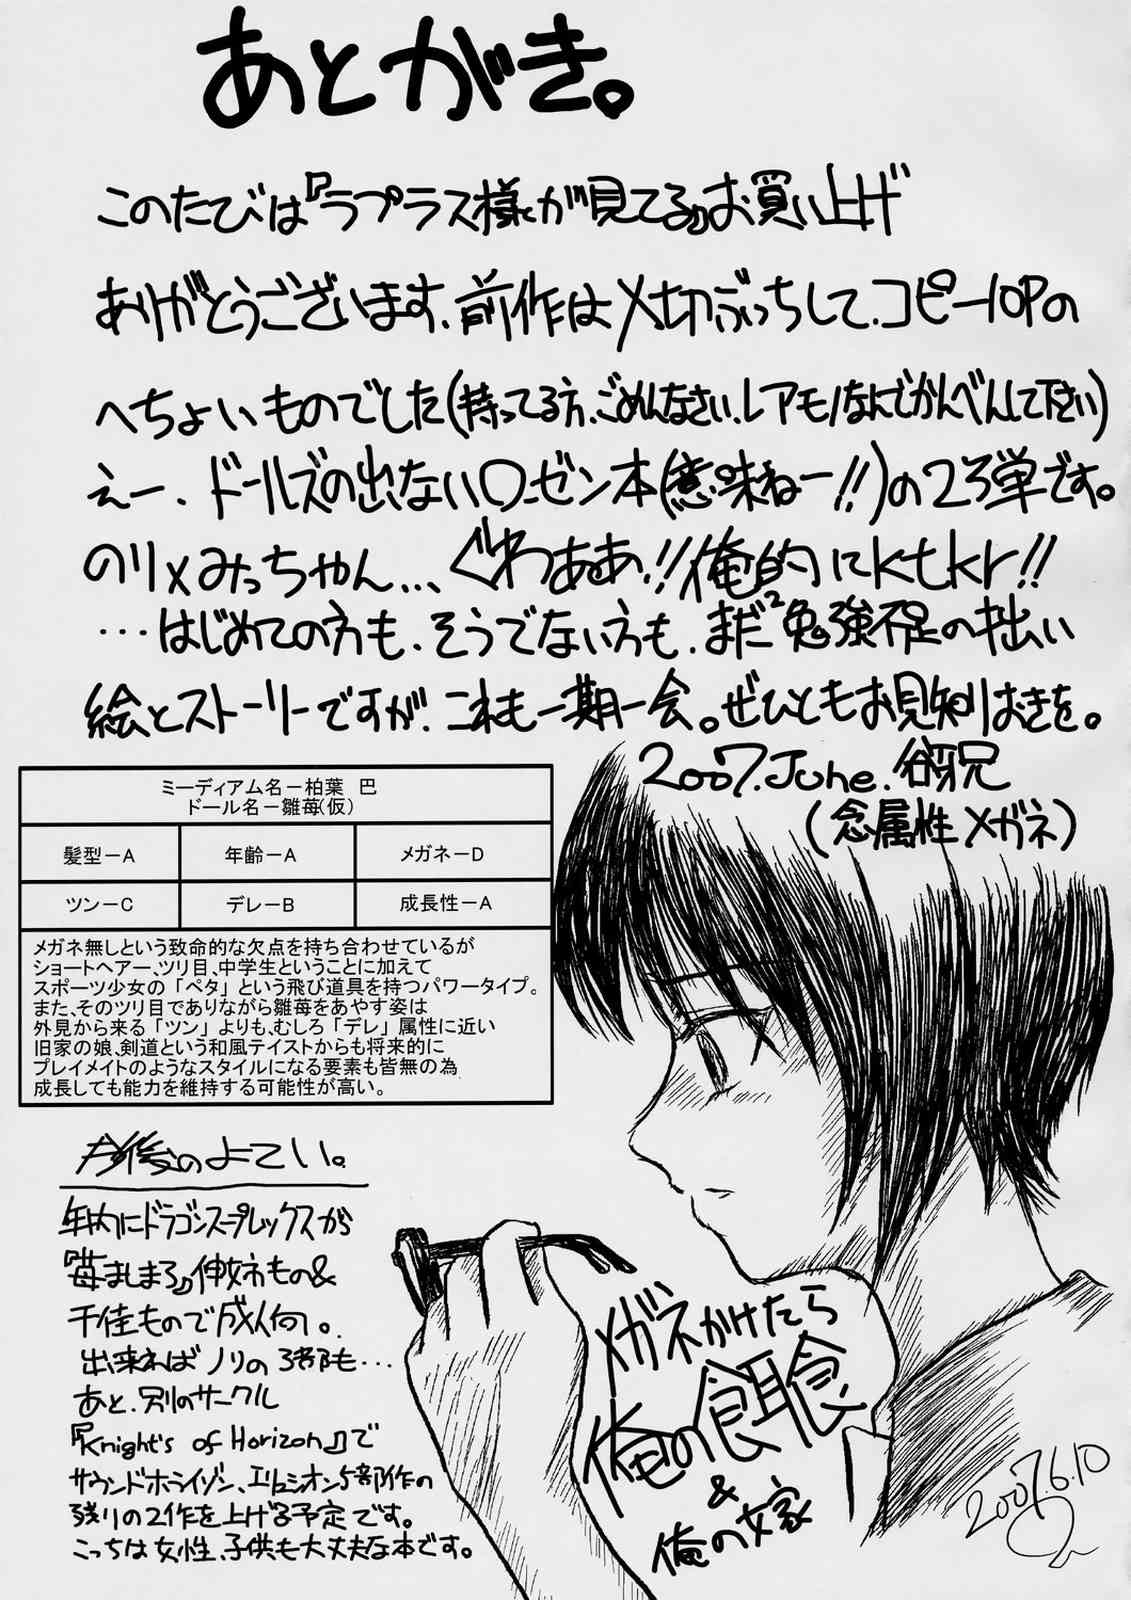 あとがき。
このたびは『ラプラス様が見てる』お買い上げ
ありがとうございます、前作は〆切ぶっちして、コピー10Pの
へちょいものでした(持ってる方、ごめんなさい、レアモノなんでかんべんして下さい)
えー、ドールズの出ないローゼン本(意味ねー!!)の2ろ弾です。
のり×みっちゃん…、ぐわぁぁ!!俺的にktkr!!
…はじめての方も、そうでない方も、まだ²勉強不足の拙い
絵とストーリーですが、これも一期一会。ぜひともお見知りおきを。
2007.June.谷牙兄
(念属性メガネ)
ミーディアム名－柏葉　巴
ドール名－雛苺(仮)
髪型－A 年齢－A メガネ－D
ツン－C デレ－B 成長性－A
メガネ無しという致命的な欠点を持ち合わせているが
ショートヘアー、ツリ目、中学生ということに加えて
スポーツ少女の「ペタ」という飛び道具を持つパワータイプ。
また、そのツリ目でありながら雛苺をあやす姿は
外見から来る「ツン」よりも、むしろ「デレ」属性に近い
旧家の娘、剣道という和風テイストからも将来的に
プレイメイトのようなスタイルになる要素も皆無の為
成長しても能力を維持する可能性が高い。
今後のよてい。
年内にドラゴンスープレックスが
『苺ましまろ』伸姉もの&
千佳もので成人向。
出来ればノリの3部も…
あと、別のサークル
『Knight's of Horizon』で
サウンドホライゾン、エリュシオン5部作の
残りの2作を上げる予定です。
こっちは女性、子供も大丈夫な本です。
メガネかけたら
俺の餌食
&
俺の嫁
2007.6.10